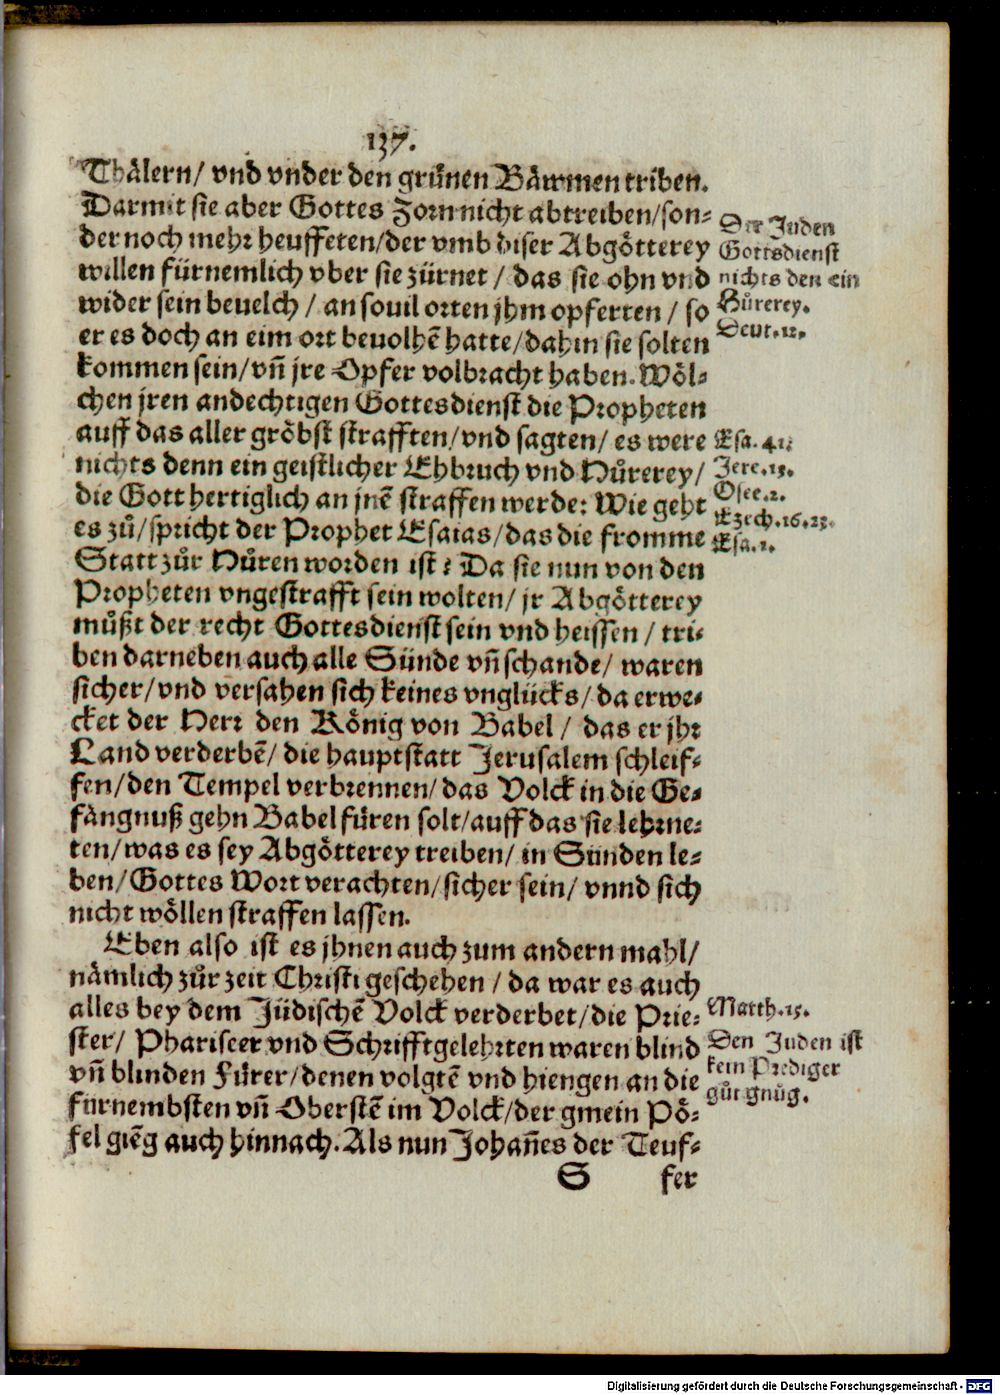 137.
Thälern/ vnd vnder den grünen Bäwmen triben.
Darmit sie aber Gottes Zorn nicht abtreiben/son⸗
der noch mehr heuffeten/der vmb diser Abgötterey
willen fürnemlich vber sie zürnet / das sie ohn vnd
wider sein beuelch / an souil orten jhm opferten / so
er es doch an eim ort beuolhẽ hatte/dahin sie solten
kommen sein/vñ jre Opfer volbracht haben. Wöl⸗
chen jren andechtigen Gottesdienst die Propheten
auff das aller gröbst strafften/vnd sagten/ es were
nichts denn ein geistlicher Ehbruch vnd Hůrerey/
die Gott hertiglich an jnẽ straffen werde: Wie geht
es zů/spricht der Prophet Esaias/das die fromme
Statt zůr Hůren worden ist? Da sie nun von den
Propheten vngestrafft sein wolten/ jr Abgötterey
můßt der recht Gottesdienst sein vnd heissen / tri⸗
ben darneben auch alle Sünde vñ schande/ waren
sicher/vnd versahen sich keines vnglücks/ da erwe⸗
cket der Herr den König von Babel / das er jhr
Land verderbẽ/ die hauptstatt Jerusalem schleif⸗
fen/den Tempel verbrennen/das Volck in die Ge⸗
fängnuß gehn Babel füren solt/auff das sie lehrne⸗
ten/was es sey Abgötterey treiben/ in Sünden le⸗
ben/Gottes Wort verachten/sicher sein/ vnnd sich
nicht wöllen straffen lassen.
Eben also ist es jhnen auch zum andern mahl/
nämlich zůr zeit Christi geschehen / da war es auch
alles bey dem Jüdischẽ Volck verderbet/die Prie⸗
ster/ Phariseer vnd Schrifftgelehrten waren blind
vñ blinden Fürer/denen volgtẽ vnd hiengen an die
fürnembsten vñ Oberstẽ im Volck/der gmein Pö⸗
fel giẽg auch hinnach. Als nun Johañes der Teuf⸗
S fer
Der Juden
Gottsdienst
nichts den ein
Hůrerey.
Deut.12.
Esa. 41.
Jere.13.
Osee.2.
Ezech.16.23.
Esa.1.
Matth.15.
Den Juden ist
kein Prediger
gůt gnůg.
Digitalisierung gefördert durch die Deutsche Forschungsgemeinschaft - DFG